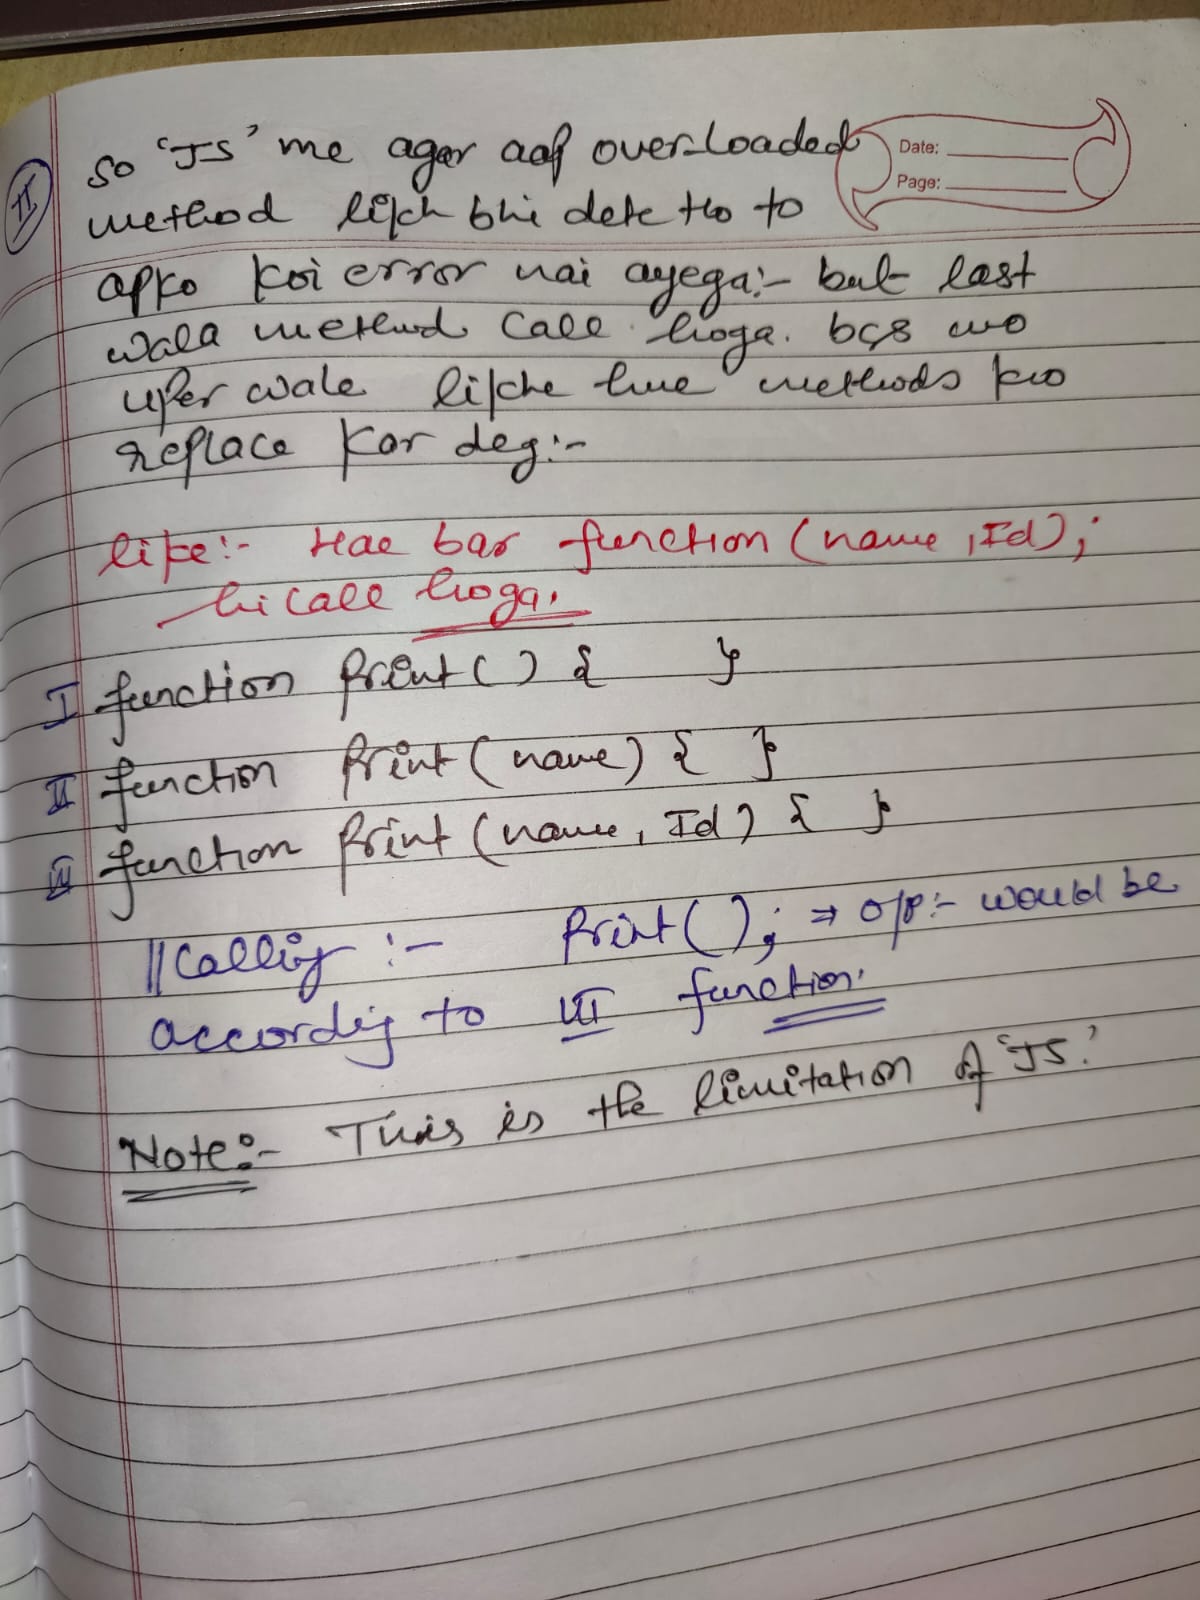 II
So 'JS' me agar aap overloaded
Date:
Page:
method likh bhi dete ho to
apko koi error nai ayega:- but last
wala method call hoga. bcs wo
uper wale likhe hue methods ko
replace kar deg:-
like:- Har bar function (name, Id);
hi call hoga.
I function print() { }
II function print (name) { }
III function print (name, Id) { }
// Calling :- print(); ⇒ o/p:- would be
according to III function.
Note:- This is the limitation of 'JS'.